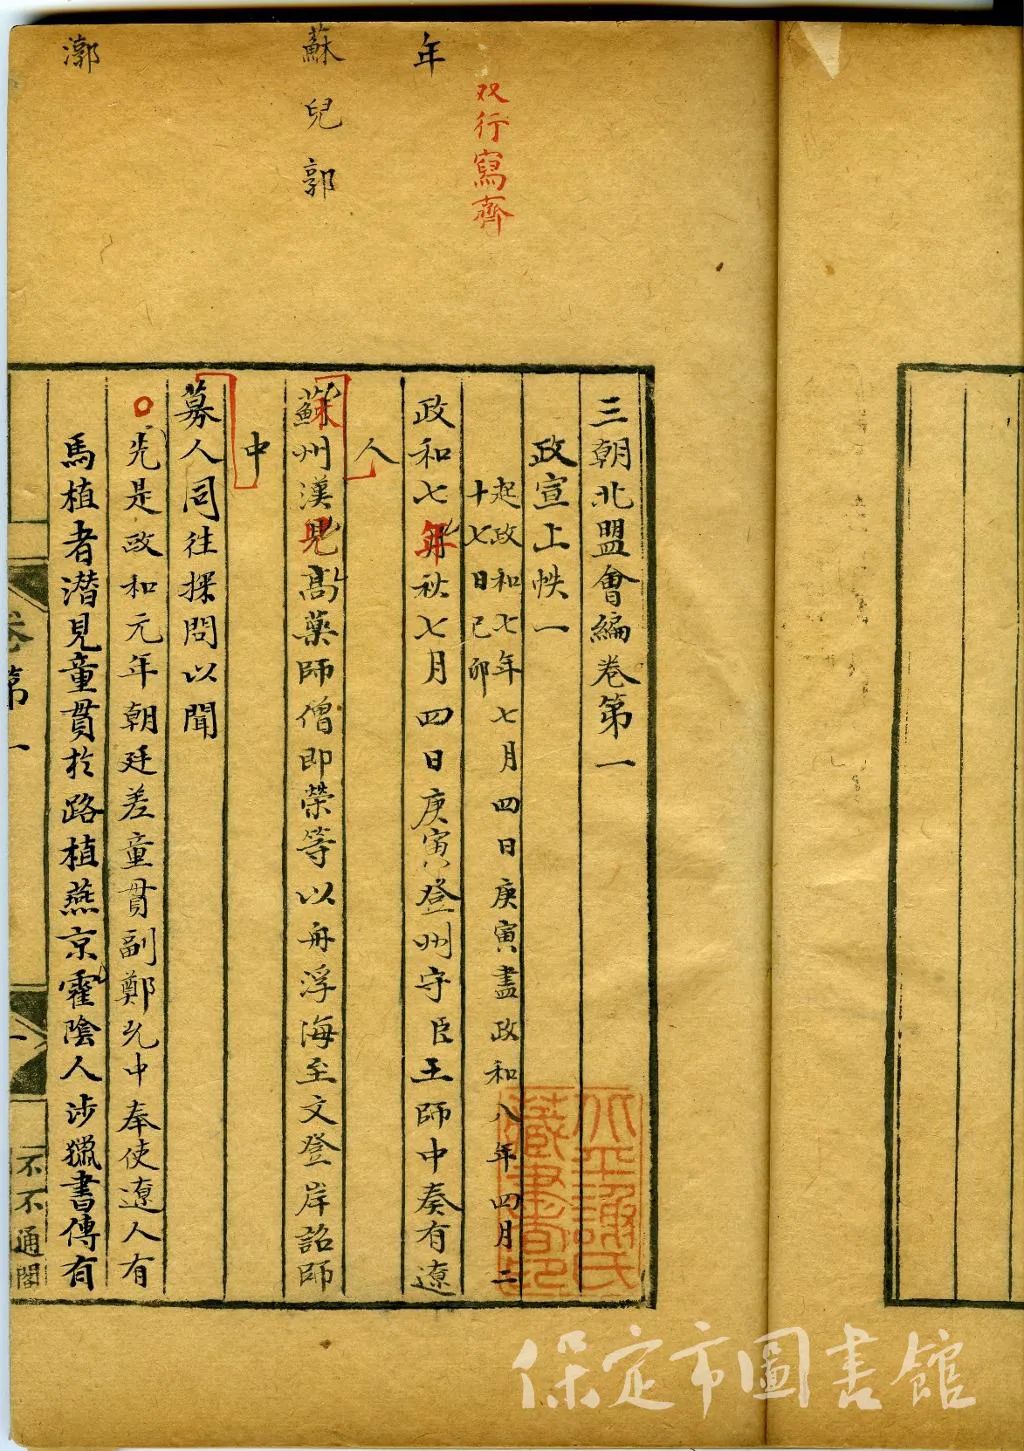 双行寫齊
年
蘇兒郭
漷
三朝北盟會編卷第一
政宣上帙一
起政和七年七月四日庚寅盡政和八年四月二
十七日己卯
政和七年秋七月四日庚寅登州守臣王師中奏有遼
人
蘇州漢兒高藥師僧即榮等以舟浮海至文登岸詔師
中
募人同往探問以聞
先是政和元年朝廷差童貫副鄭允中奉使遼人有
馬植者潛見童貫於路植燕京霍陰人涉獵書傳有
卷第一
一
不不通閣
北平謝氏
藏書印
保定市圖書館